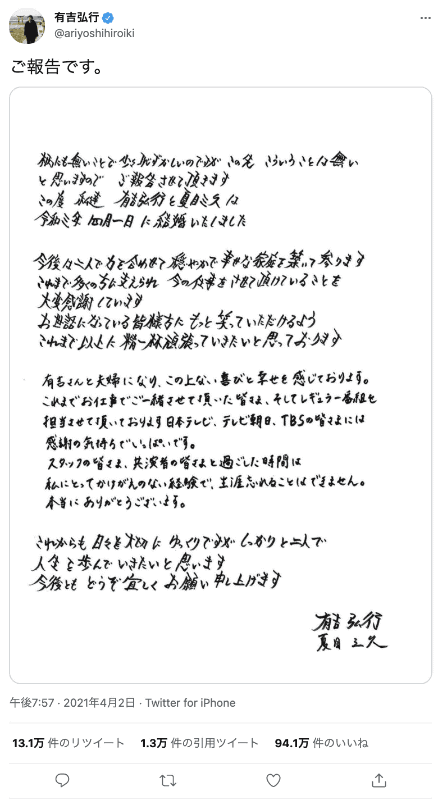 有吉弘行
@ariyoshihiroiki
ご報告です。
柄にも無いことで少々恥ずかしいのですが この先 こういうことは無い
と思いますので ご報告させて頂きます
この度 私達 有吉弘行と夏目三久は
令和三年 四月一日に結婚いたしました
今後々二人で力を合わせて穏やかで幸せな家庭を築いて参ります
これまで多くの方に支えられ 今の仕事をさせて頂けていることを
大変感謝しています
お世話になっている皆様方に もっと笑っていただけるよう
これまで以上に精一杯頑張っていきたいと思っております
有吉さんと夫婦になり、この上ない喜びと幸せを感じております。
これまでお仕事でご一緒させて頂いた皆さま、そしてレギュラー番組を
担当させて頂いております日本テレビ、テレビ朝日、TBSの皆さまには
感謝の気持ちでいっぱいです。
スタッフの皆さま、共演者の皆さまと過ごした時間は
私にとってかけがえのない経験で、生涯忘れることはできません。
本当にありがとうございます。
これからも 日々を大切に ゆっくりですが しっかりと二人で
人生を歩んでいきたいと思います
今後とも どうぞ宜しく お願い申し上げます
有吉 弘行
夏目 三久
午後7:57 · 2021年4月2日 · Twitter for iPhone
13.1万 件のリツイート 1.3万 件の引用ツイート 94.1万 件のいいね